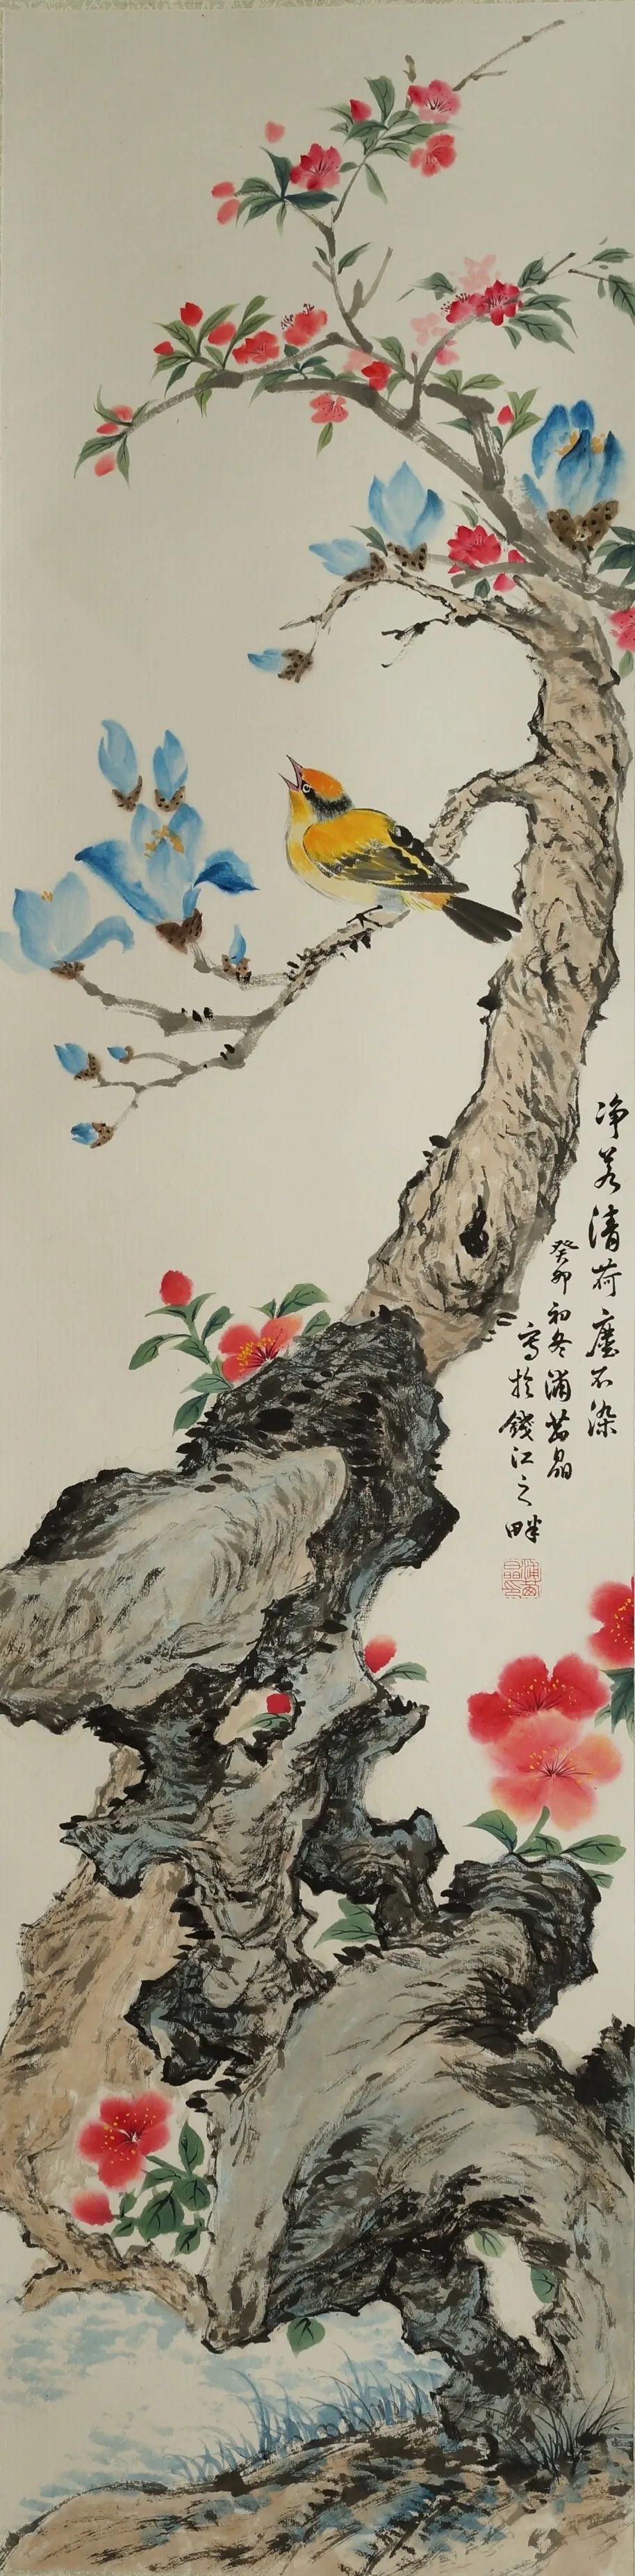 净若清荷塵不染
癸卯初冬浦茜晶
寫於錢江之畔